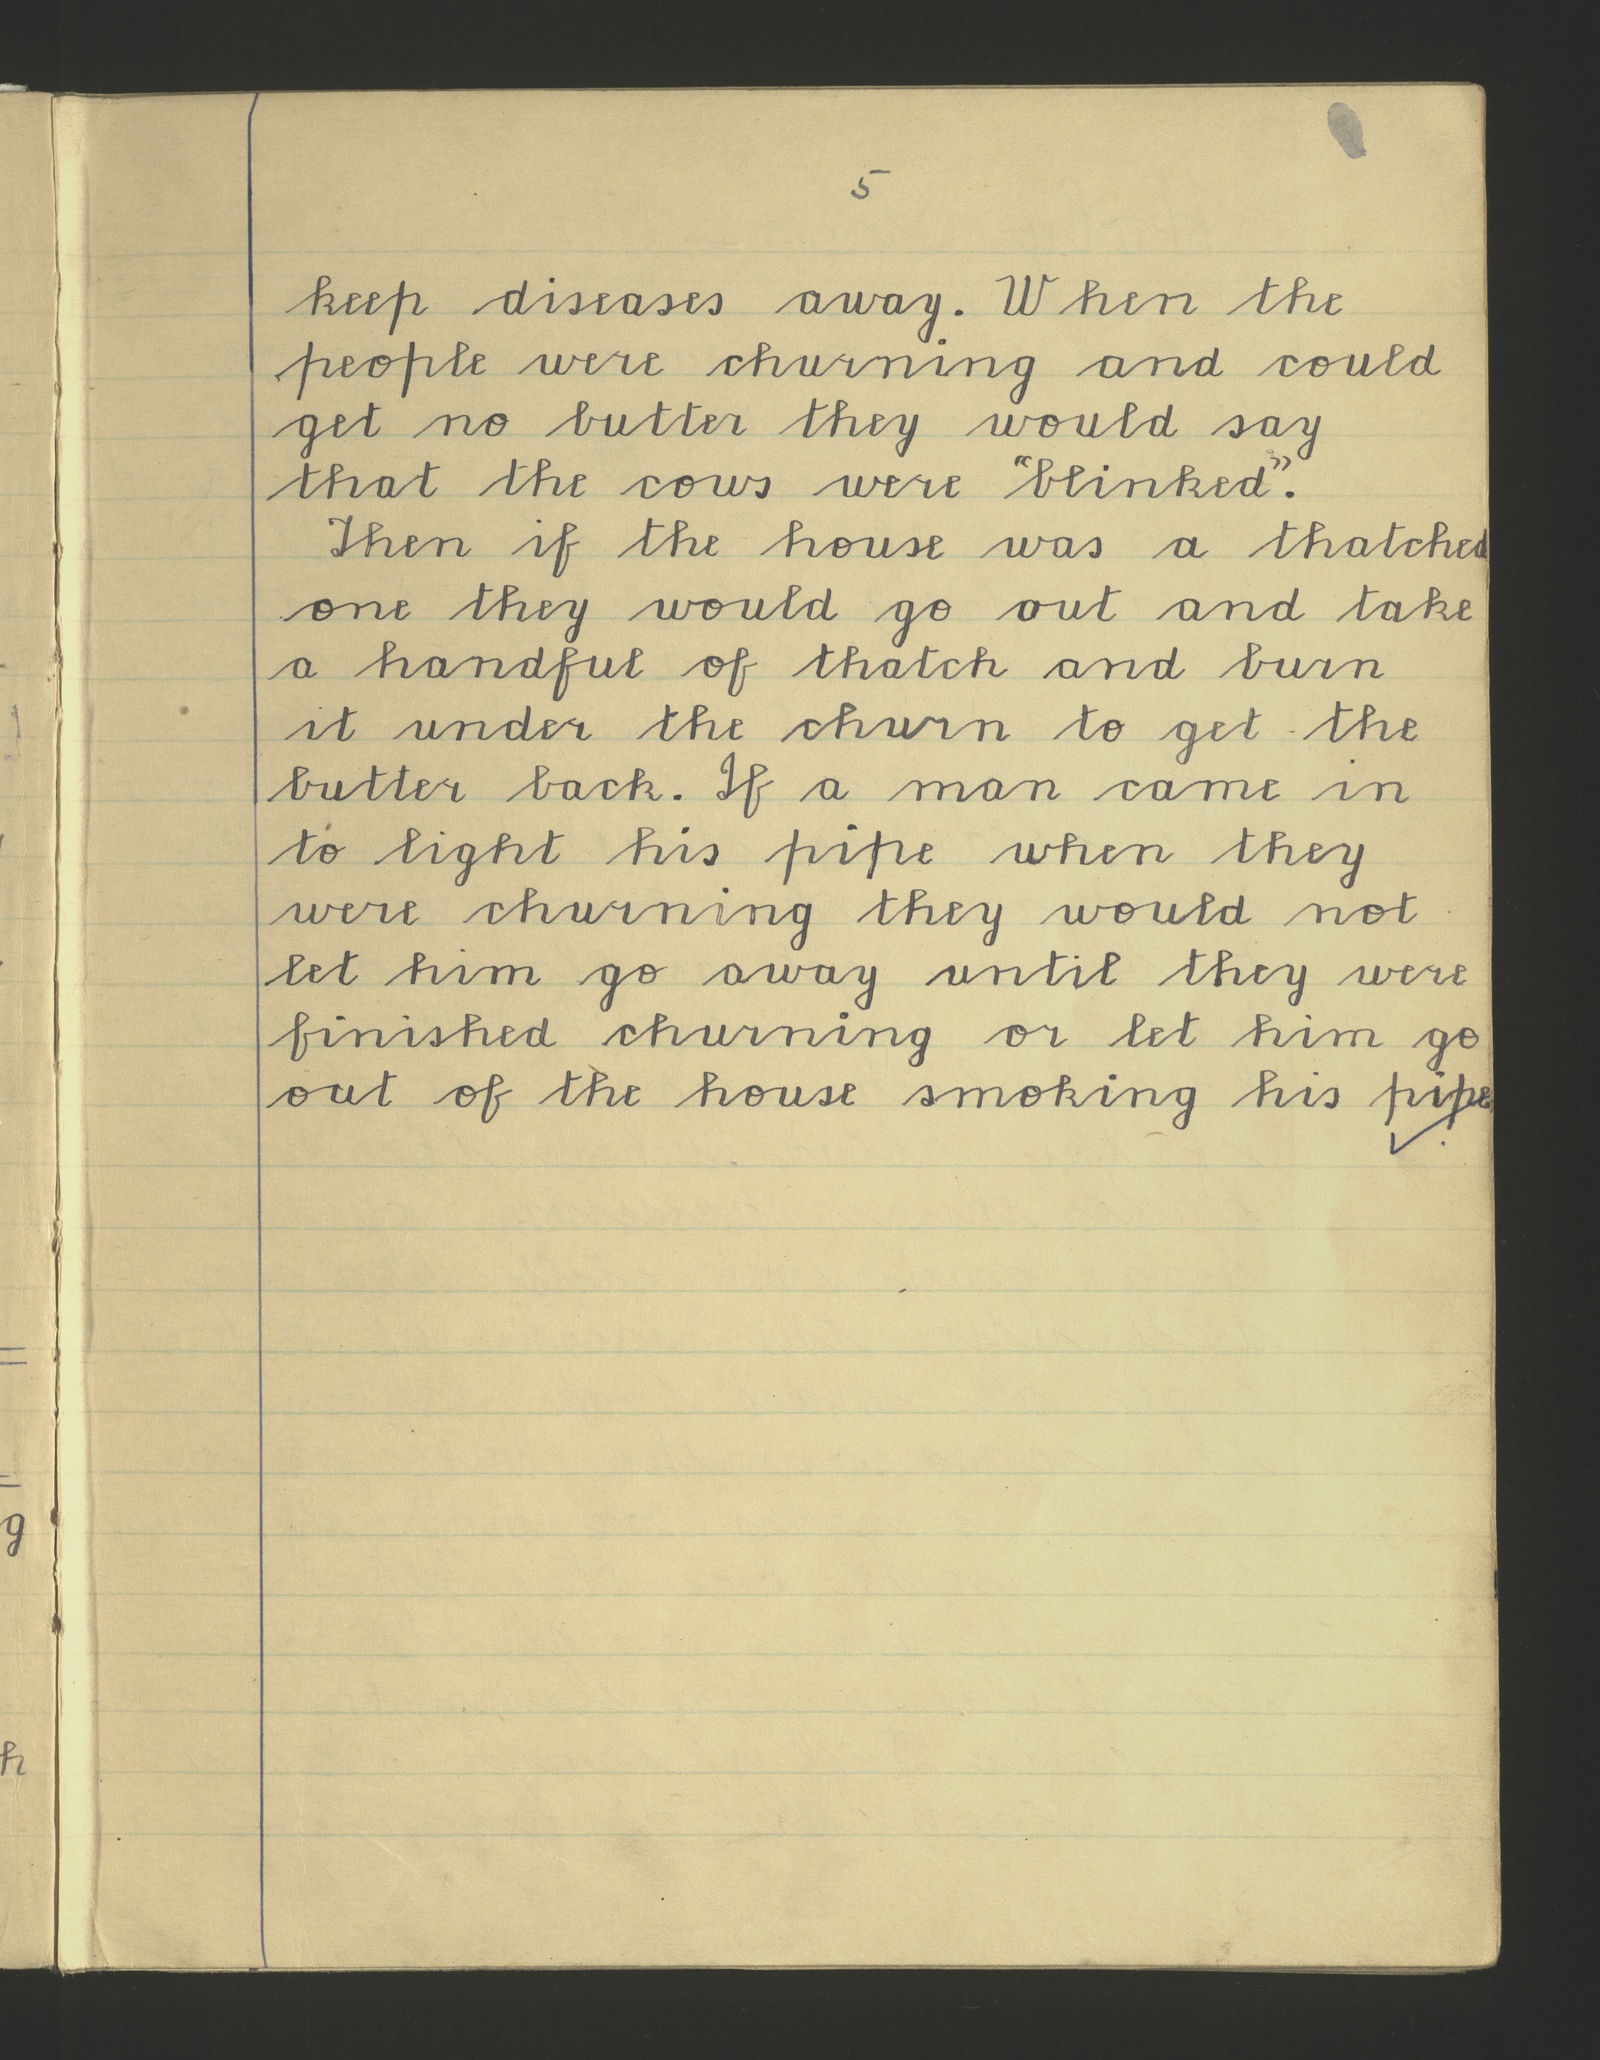 5
keep diseases away. When the
people were churning and could
get no butter they would say
that the cows were "blinked".
Then if the house was a thatched
one they would go out and take
a handful of thatch and burn
it under the churn to get the
butter back. If a man came in
to light his pipe when they
were churning they would not
let him go away until they were
finished churning or let him go
out of the house smoking his pipe
g
h